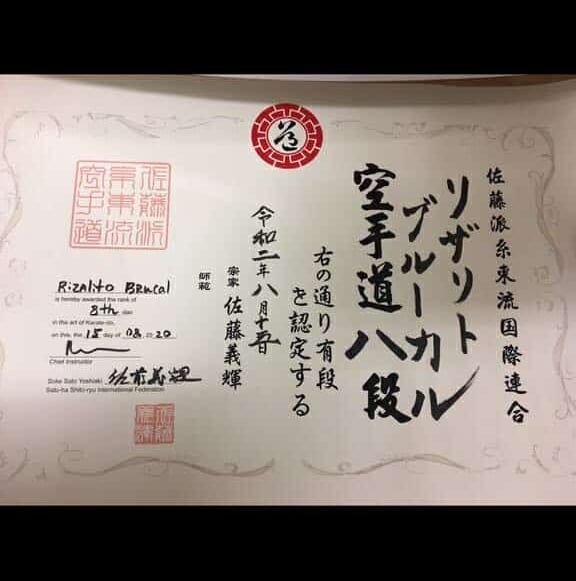 佐藤派糸東流国際連合
リザリト
ブルーカル
空手道八段
右の通り有段
を認定する
令和二年八月十五日
宗家 佐藤義輝
師範
佐藤派
糸東流
空手道
Rizalito Brucal
is hereby awarded the rank of
8th dan
in the art of Karate-do,
on this, the 15 day of 08, 20 20
Chief Instructor
Soke Sato Yoshiaki 佐藤義輝
Satu-ha Shito-ryu International Federation